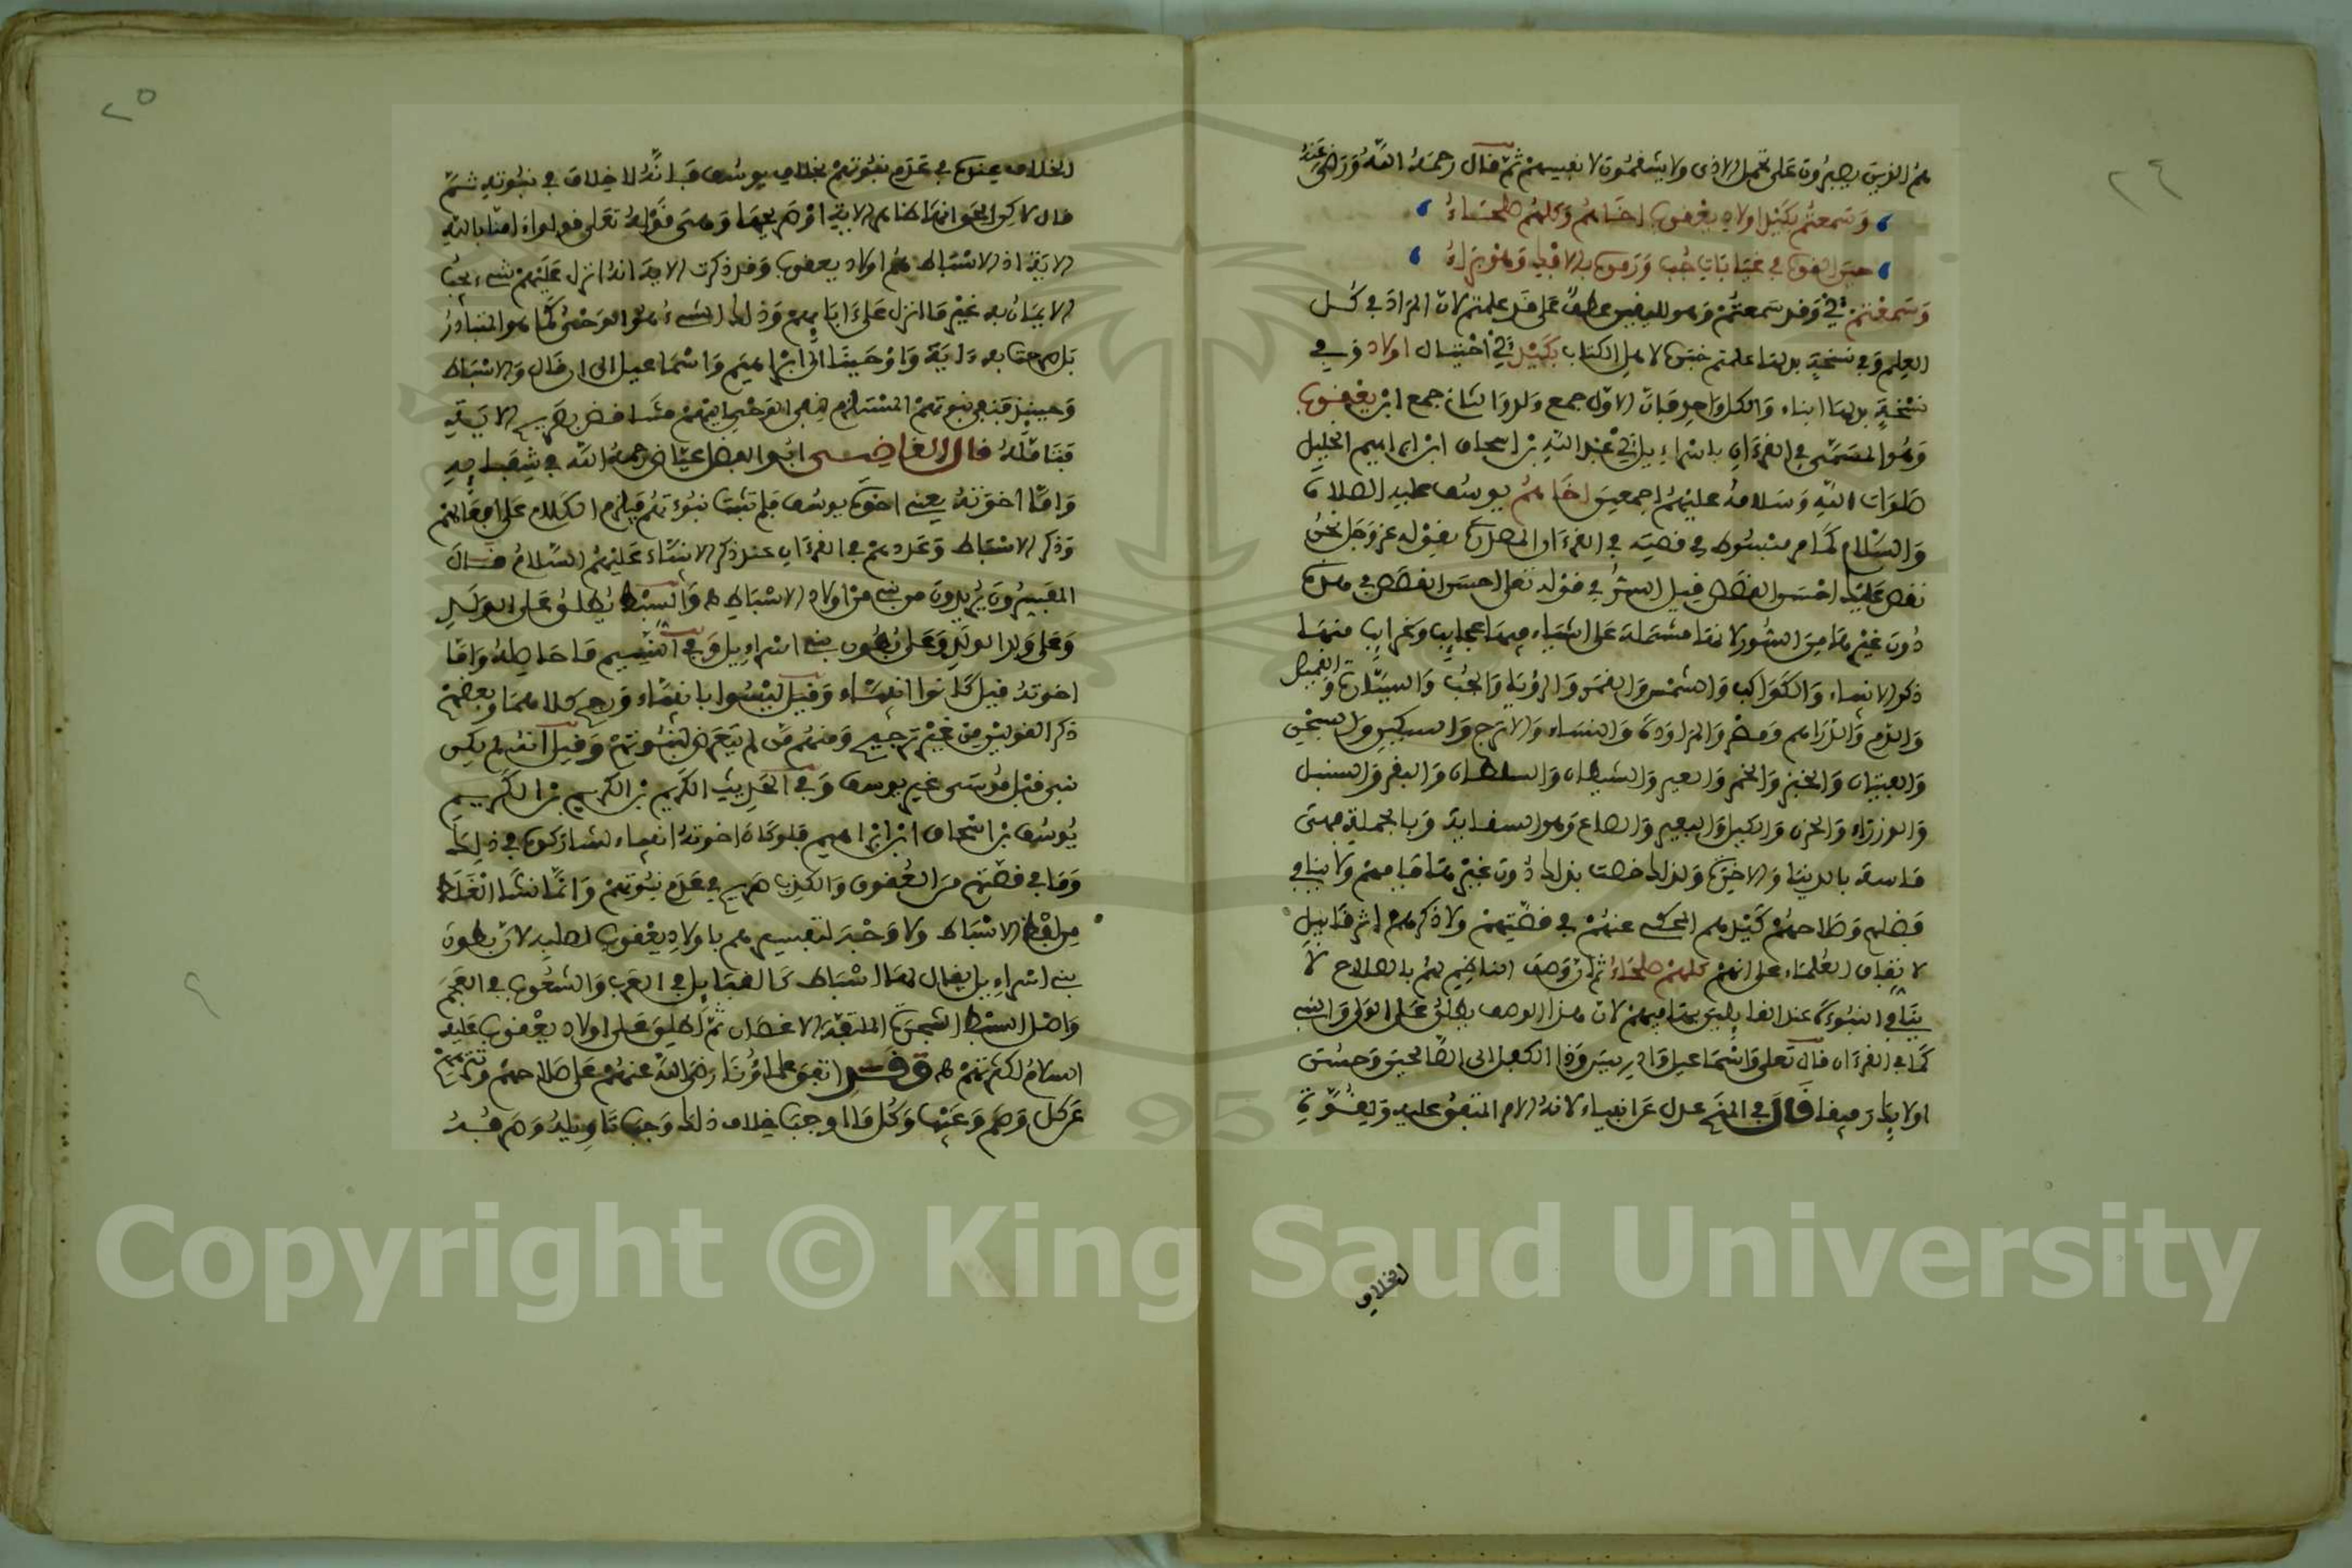 ٢٤
هم الذين يصبرون على تحمل الاذى ولا ينتقمون لانفسهم ثم قال رحمه الله ورضي عنه
وسمعتم بكيد اولاد يعقوب اخاهم وكلهم صلحاء
حين القوه في غيابات جب ورموه بالافك وهو براء
وسمعتم أي وقد سمعتم وهو لليقين عطف على قد علمتم لان المراد في كل
العلم وفي نسخة بدلها علمتم خبره لاهل الكتاب بكيد أي احتيال اولاد وفي
نسخة بدلها ابناء والكل واحد فان الاول جمع ولد والثاني جمع ابن يعقوب
وهو المسمى في القرءان باسراءيل أي عبد الله بن اسحاق ابن ابراهيم الخليل
صلوات الله وسلامه عليهم اجمعين اخاهم يوسف عليه الصلاة
والسلام كما هو مبسوط في قصته في القرءان المصدرة بقوله عز وجل نحن
نقص عليك احسن القصص قيل السر في قوله تعلى احسن القصص في هذه
دون غيرها من السور لانها مشتملة على اشياء فيها عجايب وغرايب منها
ذكر الانبياء والكواكب والشمس والقمر والرؤيا والجب والسيارة والقميص
والدم والدراهم ومصر والمراودة والنساء والاترج والسكين والسجن
والفتيان والخبز والخمر والعير والشيطان والسلطان والبقر والسنبل
والوزراء والحزن والكيل والبعير والصاع وهو السقاية وبالجملة فهي
قاسة بالدنيا والاخرة ولذلك خصت بذلك دون غيرها فافهم ولا ينافي
فضلهم وصلاحهم كيدهم المحكي عنهم في قصتهم ولا ذكرهم اثر قابيل
لاتفاق العلماء على انهم كلهم صلحاء ثم ان وصف الناظم لهم بالصلاح لا
ينافي النبوءة عند القايلين بها فيهم لان هذا الوصف يطلق على الولي والنبي
كما في القرءان قال تعلى واسماعيل وادريس وذا الكفل الى الصالحين وحسن
اولايك رفيقا قال في المنح عدل عن انبياء لانه الامر المتفق عليه ولقوة
الخلاف
٢٥
الخلاف عنده في عدم نبوتهم بخلاف يوسف فانه لا خلاف في نبوته ثم
قال لاكن الحق انها ظاهر الاية او صريحها وهي قوله تعلى قولوا ءامنا بالله
الاية اذ الاسباط هم اولاد يعقوب وقد ذكرت الاية انه انزل عليهم شيء يجب
الايمان به غير ما انزل على ءابايهم وذلك الشيء هو الوحي كما هو المتبادر
بل صرحت به ءاية واوحينا الى ابراهيم واسماعيل الى ان قال والاسباط
وحينيذ فنفي نبوتهم المستلزم لنفي الوحي اليهم مناقض بصريح الاية
فتامله قال القاضي ابو الفضل عياض رحمه الله في شفايه
واما اخوته يعني اخوة يوسف فلم تثبت نبوءتهم فيلزم الكلام على افعالهم
وذكر الاسباط وعدهم في القرءان عند ذكر الانبياء عليهم السلام قال
المفسرون يريدون من نبي من اولاد الاسباط ه والسبط يطلق على الولد
وعلى ولد الولد وعلى بطون بني اسراءيل وفي النسيم ما حاصله واما
اخوته فقيل كانوا انبياء وقيل ليسوا بانبياء ورجح كلا منهما وبعضهم
ذكر القولين من غير ترجيح ومنهم من لم يتعرض لنبوتهم وقيل انه لم يكن
نبي قبل موسى غير يوسف وفي الحديث الكريم بن الكريم بن الكريم
يوسف بن اسحاق ابن ابراهيم فلو كان اخوته انبياء لشاركوه في ذلك
وما في قصتهم من العقوق والكذب صريح في عدم نبوتهم وانما نشأ الغلط
من لفظ الاسباط ولا وجه لتفسيرهم باولاد يعقوب لصلبه لان بطون
بني اسراءيل يقال لها اسباط كالقبايل في العرب والشعوب في العجم
واصل السبط الشجرة الملتفة الاغصان ثم اطلق على اولاد يعقوب عليه
السلام لكثرتهم ه وقد اتفق علماؤنا رضي الله عنهم على صلاحهم وتنزيههم
عن كل وصم وعيب وكل ما اوجب خلاف ذلك وجب تاويله وصرفه
Copyright © King Saud University